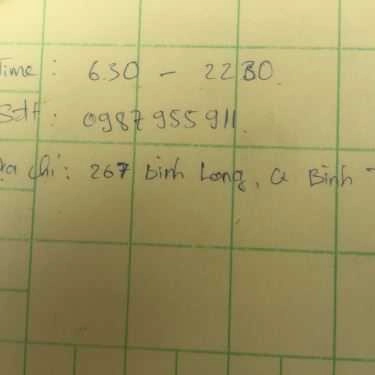 Time: 6.30 - 22 30
Sđt: 0987 955 911
Địa chỉ: 267 Bình Long, Q Bình